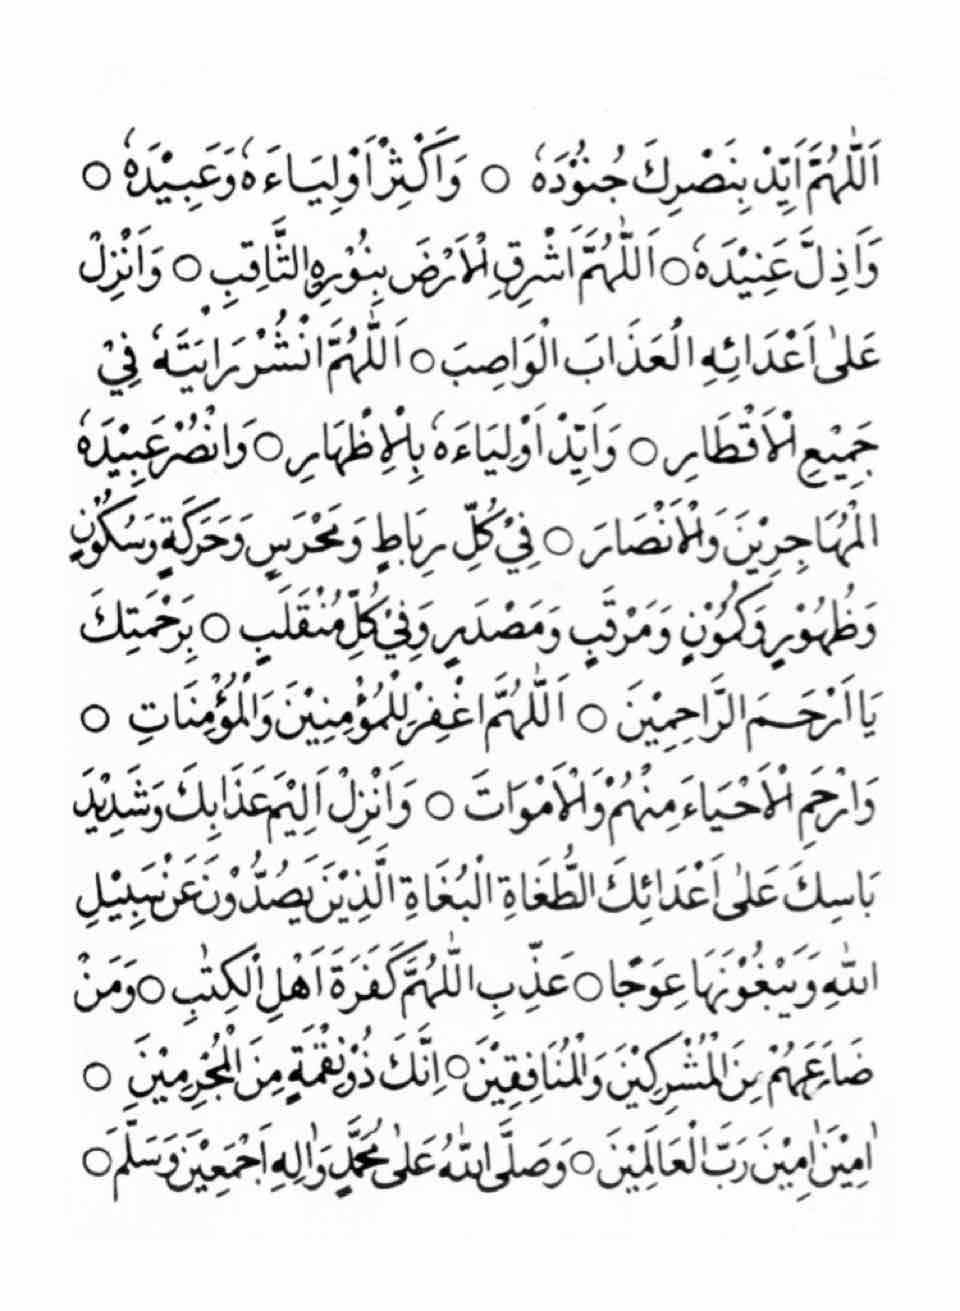 اَللّٰهُمَّ اَيِّدْ بِنَصْرِكَ جُنُوْدَهٗ ○ وَاَكْثِرْ اَوْلِيَاءَهٗ وَعَبِيْدَهٗ ○
وَاَذِلَّ عَنِيْدَهٗ ○ اَللّٰهُمَّ اَشْرِقِ الْاَرْضَ بِنُوْرِهِ الثَّاقِبِ ○ وَاَنْزِلْ
عَلٰى اَعْدَائِهِ الْعَذَابَ الْوَاصِبَ ○ اَللّٰهُمَّ انْشُرْ رَايَتَهٗ فِيْ
جَمِيْعِ الْاَقْطَارِ ○ وَاَيِّدْ اَوْلِيَاءَهٗ بِالْاِظْهَارِ ○ وَانْصُرْ عَبِيْدَهٗ
الْمُهَاجِرِيْنَ وَالْاَنْصَارَ ○ فِيْ كُلِّ رِبَاطٍ وَمَحْرَسٍ وَحَرَكَةٍ وَسُكُوْنٍ
وَظُهُوْرٍ وَكُمُوْنٍ وَمَرْقَبٍ وَمَصْدَرٍ وَفِيْ كُلِّ مُنْقَلَبٍ ○ بِرَحْمَتِكَ
يَا اَرْحَمَ الرَّاحِمِيْنَ ○ اَللّٰهُمَّ اغْفِرْ لِلْمُؤْمِنِيْنَ وَالْمُؤْمِنَاتِ ○
وَارْحَمِ الْاَحْيَاءَ مِنْهُمْ وَالْاَمْوَاتَ ○ وَاَنْزِلْ اَلِيْمَ عَذَابِكَ وَشَدِيْدَ
بَاسِكَ عَلٰى اَعْدَائِكَ الطُّغَاةِ الْبُغَاةِ الَّذِيْنَ يَصُدُّوْنَ عَنْ سَبِيْلِ
اللهِ وَيَبْغُوْنَهَا عِوَجًا ○ عَذِّبِ اللّٰهُمَّ كَفَرَةَ اَهْلِ الْكِتٰبِ ○ وَمَنْ
ضَاعَهُمْ مِنَ الْمُشْرِكِيْنَ وَالْمُنَافِقِيْنَ ○ اِنَّكَ ذُوْ نِقْمَةٍ مِنَ الْمُجْرِمِيْنَ ○
اٰمِيْنَ اٰمِيْنَ رَبَّ الْعَالَمِيْنَ ○ وَصَلَّى اللهُ عَلٰى مُحَمَّدٍ وَاٰلِهِ اَجْمَعِيْنَ وَسَلَّمَ ○